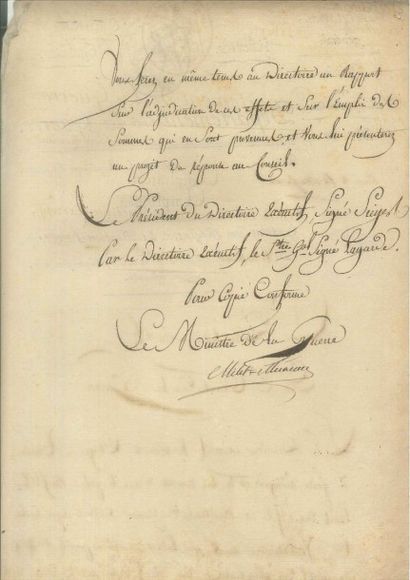 Vous ferez en même tems au Directoire un Rapport
Sur l'adjudication de ces effets et Sur l'Emploi des
Sommes qui en Sont provenues, et Vous lui présenterez
un projet de réponse au Conseil.
Le Président du Directoire Exécutif, Signé Sieyes
Par le Directoire Exécutif, le Stre Gal Signé Lagarde.
Pour Copie Conforme
Le Ministre de la Guerre